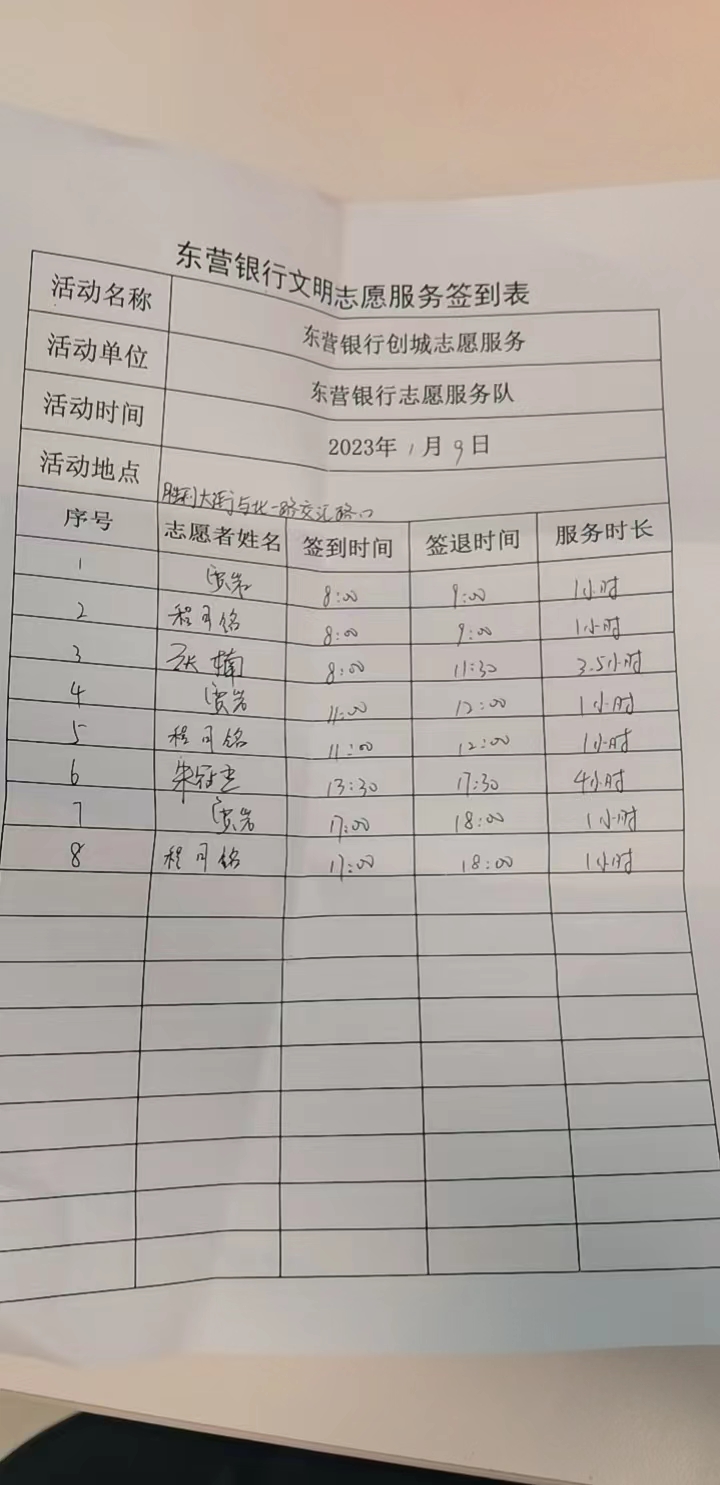 东营银行文明志愿服务签到表
活动名称 东营银行创城志愿服务
活动单位 东营银行志愿服务队
活动时间 2023年1月9日
活动地点 胜利大街与北一路交汇路口
序号 志愿者姓名 签到时间 签退时间 服务时长
1 贾岩 8:00 9:00 1小时
2 程可铭 8:00 9:00 1小时
3 张楠 8:00 11:30 3.5小时
4 贾岩 11:00 12:00 1小时
5 程可铭 11:00 12:00 1小时
6 朱冠杰 13:30 17:30 4小时
7 贾岩 17:00 18:00 1小时
8 程可铭 17:00 18:00 1小时